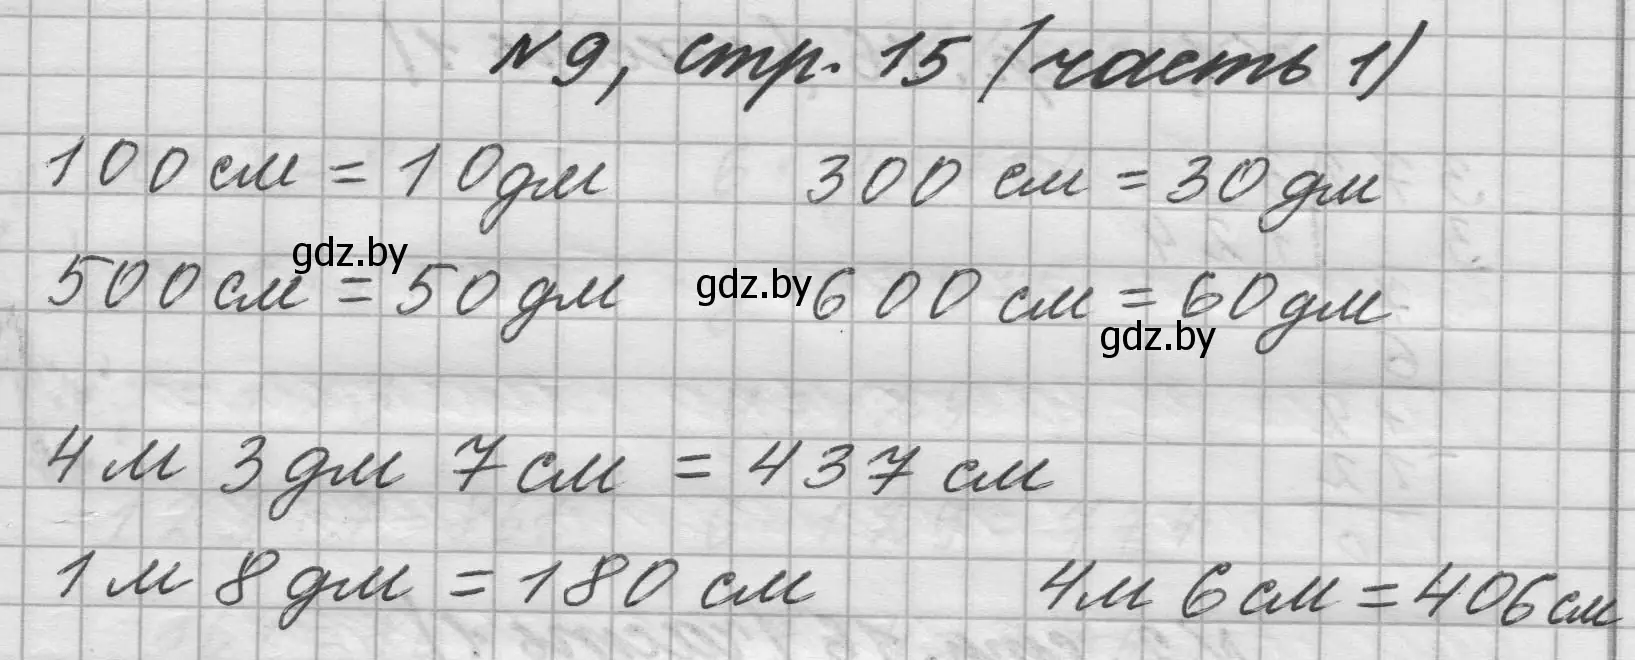 №9, стр. 15 (часть 1)
100 см = 10 дм 300 см = 30 дм
gdz.by
500 см = 50 дм gdz.by 600 см = 60 дм
gdz.by
4 м 3 дм 7 см = 437 см
1 м 8 дм = 180 см 4 м 6 см = 406 см